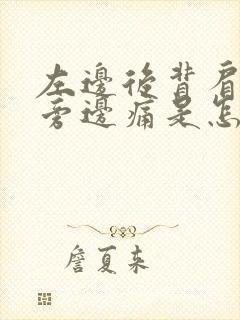 左邊後背肩
旁邊痛是怎
詹夏来